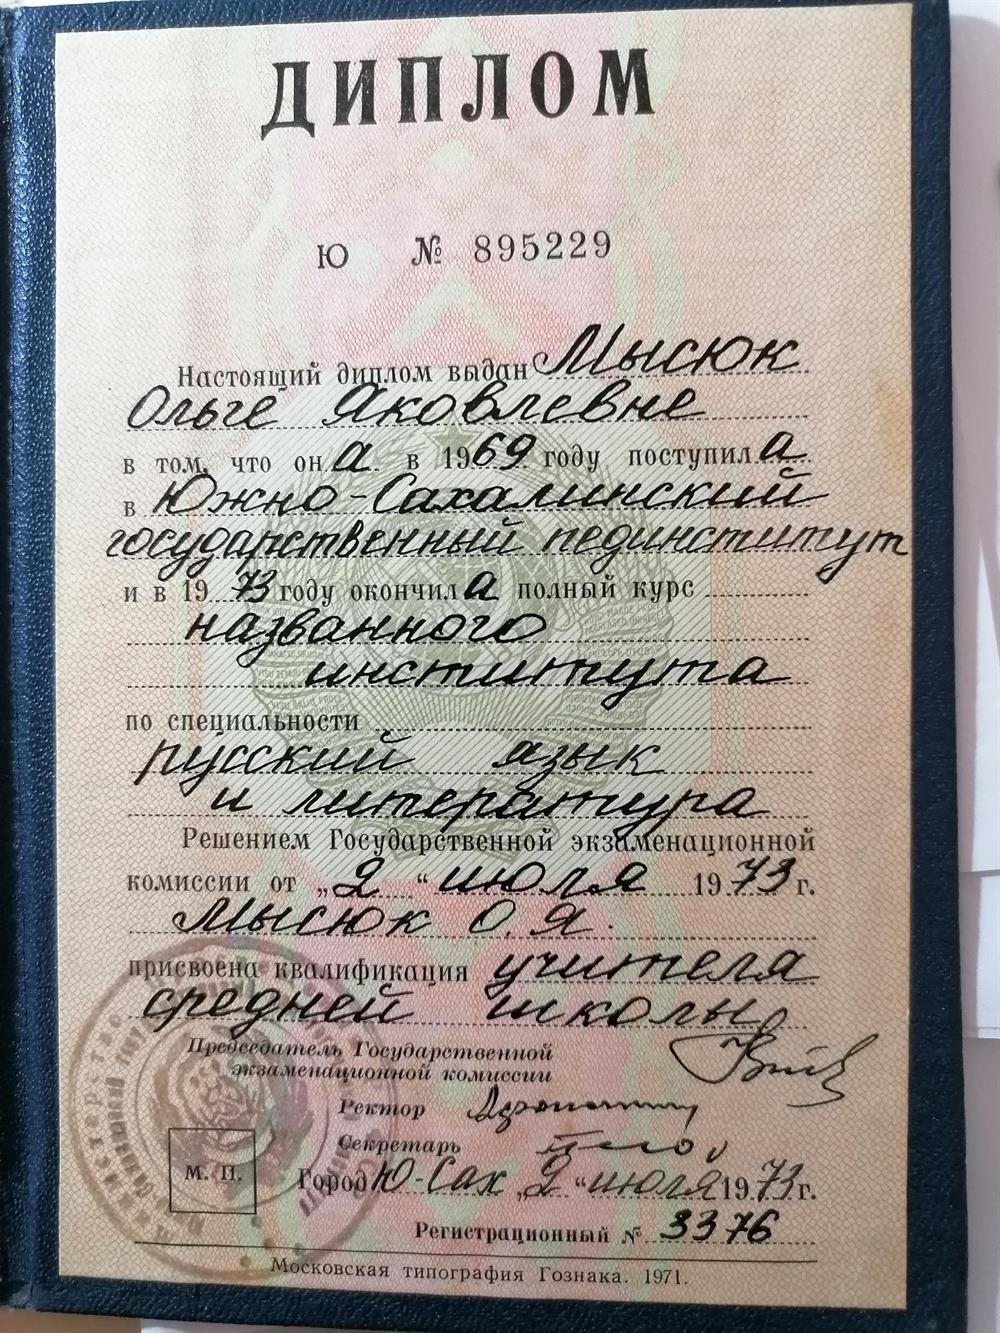 ДИПЛОМ
Ю № 895229
Настоящий диплом выдан Мысюк
Ольге Яковлевне
в том, что она в 1969 году поступила
в Южно-Сахалинский
государственный пединститут
и в 1973 году окончила полный курс
названного
института
по специальности
русский язык
и литература
Решением Государственной экзаменационной
комиссии от „2“ июля 1973 г.
Мысюк О. Я.
присвоена квалификация учителя
средней школы
Председатель Государственной
экзаменационной комиссии
Ректор
Секретарь
М. П.
Город Ю-Сах „2“ июля 1973 г.
Регистрационный № 3376
Московская типография Гознака. 1971.